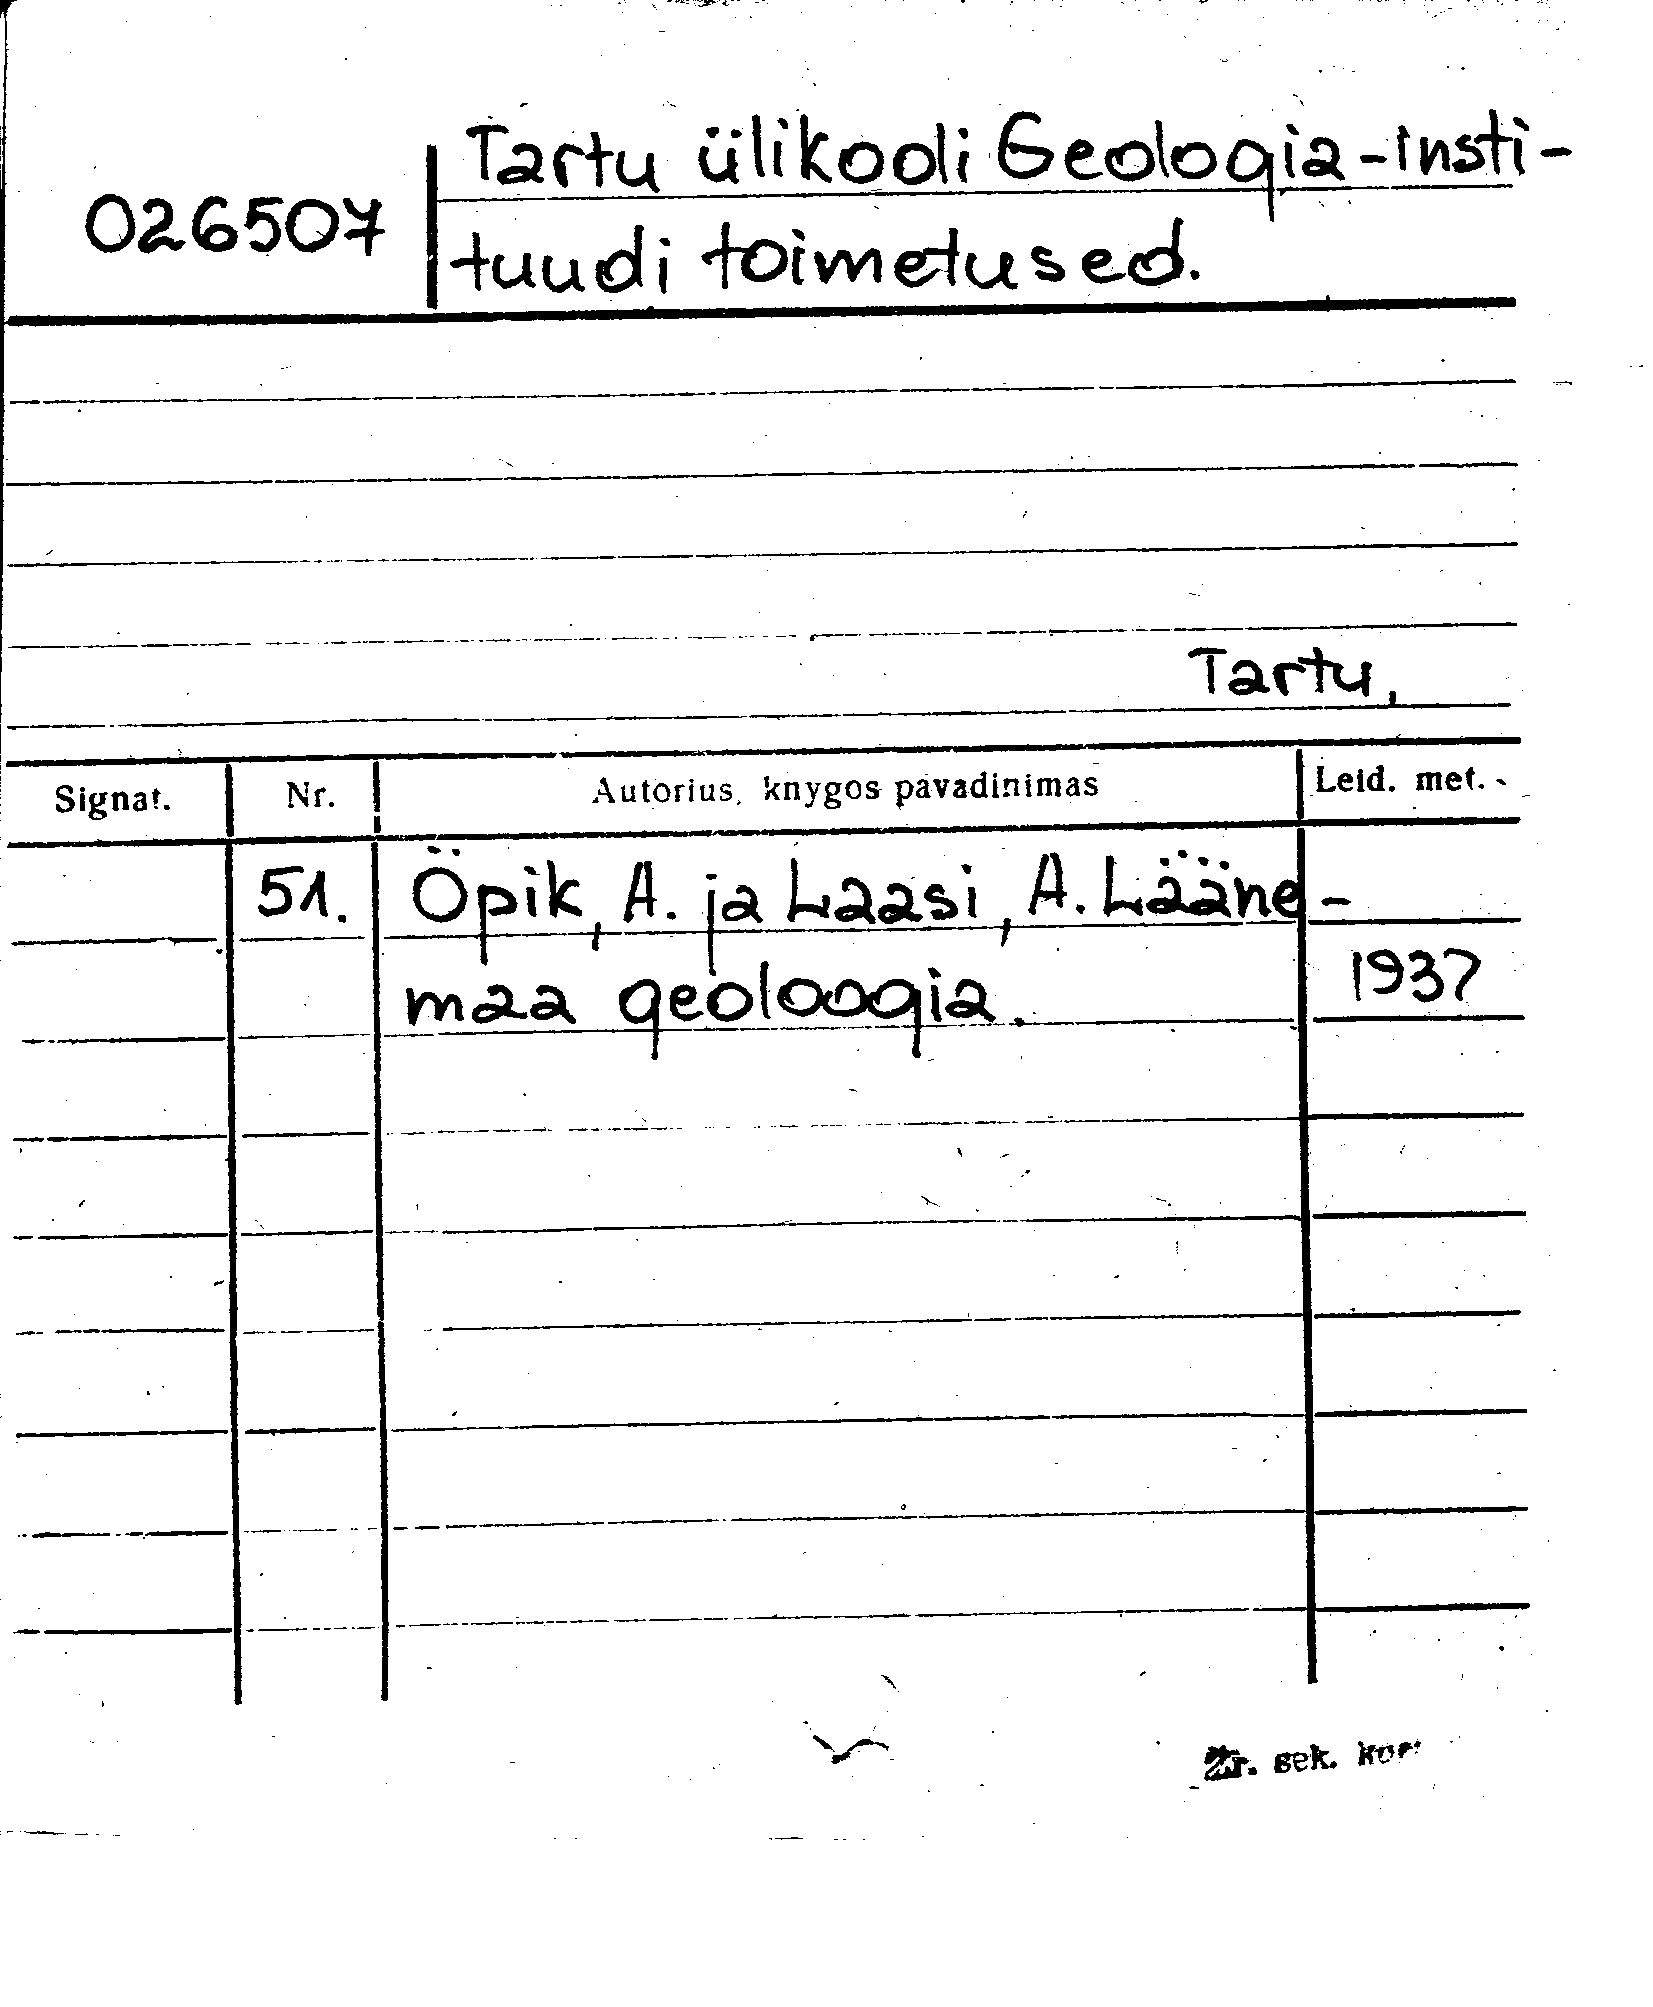 Tartu ülikooli Geologia-insti-
026507
tuudi toimetused.
Tartu,
Signat. Nr. Autorius, knygos pavadinimas Leid. met.
51. Öpik, A. ja Laasi, A. Lääne-
maa geoloogia. 1937
Žr. sek. kor